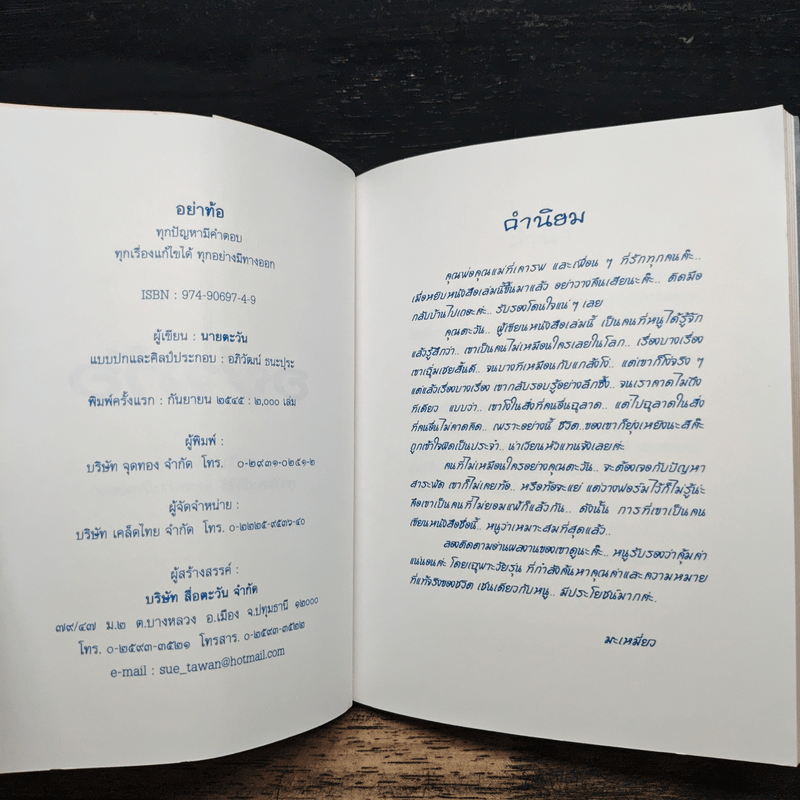 อย่าท้อ
ทุกปัญหามีคำตอบ
ทุกเรื่องแก้ไขได้ ทุกอย่างมีทางออก
ISBN : 974-90697-4-9
ผู้เขียน : นายตะวัน
แบบปกและศิลป์ประกอบ : อภิวัฒน์ ธนะปุระ
พิมพ์ครั้งแรก : กันยายน ๒๕๔๕ : ๒,๐๐๐ เล่ม
ผู้พิมพ์ :
บริษัท จุดทอง จำกัด โทร. ๐-๒๙๓๑-๐๒๕๑-๒
ผู้จัดจำหน่าย :
บริษัท เคล็ดไทย จำกัด โทร. ๐-๒๒๒๕-๙๕๓๖-๔๐
ผู้สร้างสรรค์ :
บริษัท สื่อตะวัน จำกัด
๗๙/๔๗ ม.๒ ต.บางหลวง อ.เมือง จ.ปทุมธานี ๑๒๐๐๐
โทร. ๐-๒๕๙๓-๓๕๒๑ โทรสาร. ๐-๒๕๙๓-๓๕๒๒
e-mail : sue_tawan@hotmail.com
คำนิยม
คุณพ่อคุณแม่ที่เคารพ และเพื่อน ๆ ที่รักทุกคนค๊ะ..
เมื่อหยิบหนังสือเล่มนี้ขึ้นมาแล้ว อย่าวางคืนเสียนะค๊ะ.. ติดมือ
กลับบ้านไปเถอะค่ะ.. รับรองโดนใจแน่ ๆ เลย
คุณตะวัน.. ผู้เขียนหนังสือเล่มนี้ เป็นคนที่หนูได้รู้จัก
แล้วรู้สึกว่า.. เขาเป็นคนไม่เหมือนใครเลยในโลก.. เรื่องบางเรื่อง
เขาเฉิ่มเชยสิ้นดี.. จนบางทีเหมือนกับแกล้งโง่.. แต่เขาก็โง่จริง ๆ
แต่แล้วเรื่องบางเรื่อง เขากลับรอบรู้อย่างลึกซึ้ง.. จนเราคาดไม่ถึง
ทีเดียว แบบว่า.. เขาโง่ในสิ่งที่คนอื่นฉลาด.. แต่ไปฉลาดในสิ่ง
ที่คนอื่นไม่คาดคิด.. เพราะอย่างนี้ ชีวิต..ของเขาก็ยุ่งเหยิงนะสิค๊ะ
ถูกเข้าใจผิดเป็นประจำ.. น่าเวียนหัวแทนจังเลยค่ะ
คนที่ไม่เหมือนใครอย่างคุณตะวัน.. จะต้องเจอกับปัญหา
สาระพัด เขาก็ไม่เคยท้อ.. หรือท้อจะแย่ แต่วางฟอร์มไว้ก็ไม่รู้น่ะ
คือเขาเป็นคนที่ไม่ยอมแพ้ก็แล้วกัน.. ดังนั้น การที่เขาเป็นคน
เขียนหนังสือชื่อนี้.. หนูว่าเหมาะสมที่สุดแล้ว..
ลองติดตามอ่านผลงานของเขาดูนะค๊ะ.. หนูรับรองว่าคุ้มค่า
แน่นอนค่ะ โดยเฉพาะวัยรุ่น ที่กำลังค้นหาคุณค่าและความหมาย
ที่แท้จริงของชีวิต เช่นเดียวกับหนู.. มีประโยชน์มากค่ะ.
มะเหมี่ยว